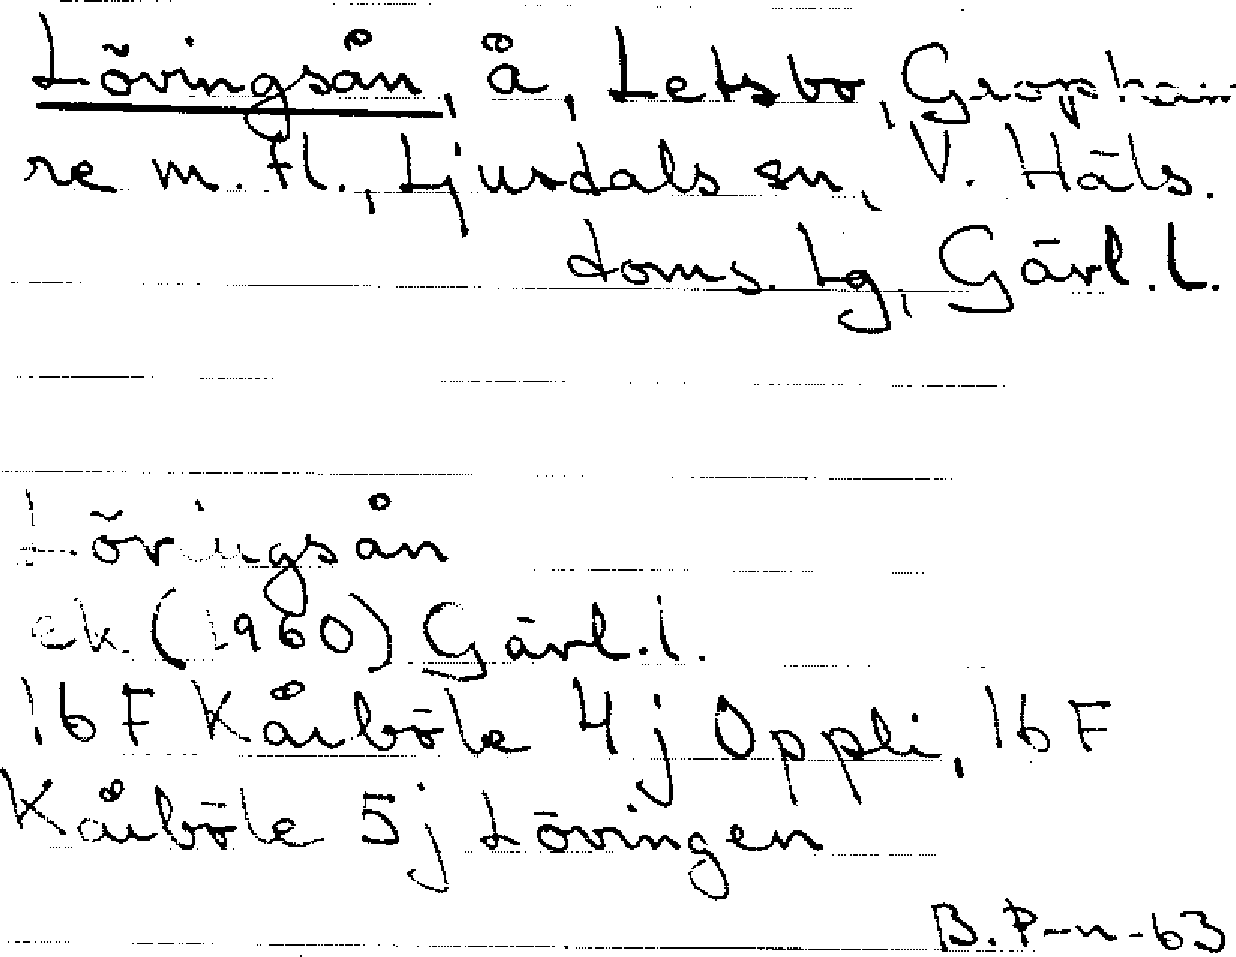 Lövingsån, å, Letsbo, Gropham-
re m. fl., Ljusdals sn, V. Häls.
doms. lg, Gävl. l.
Lövingsån
ek. (1960) Gävl. l.
16 F Kårböle 4j Oppli, 16 F
Kårböle 5j Lövingen
B. P-n-63